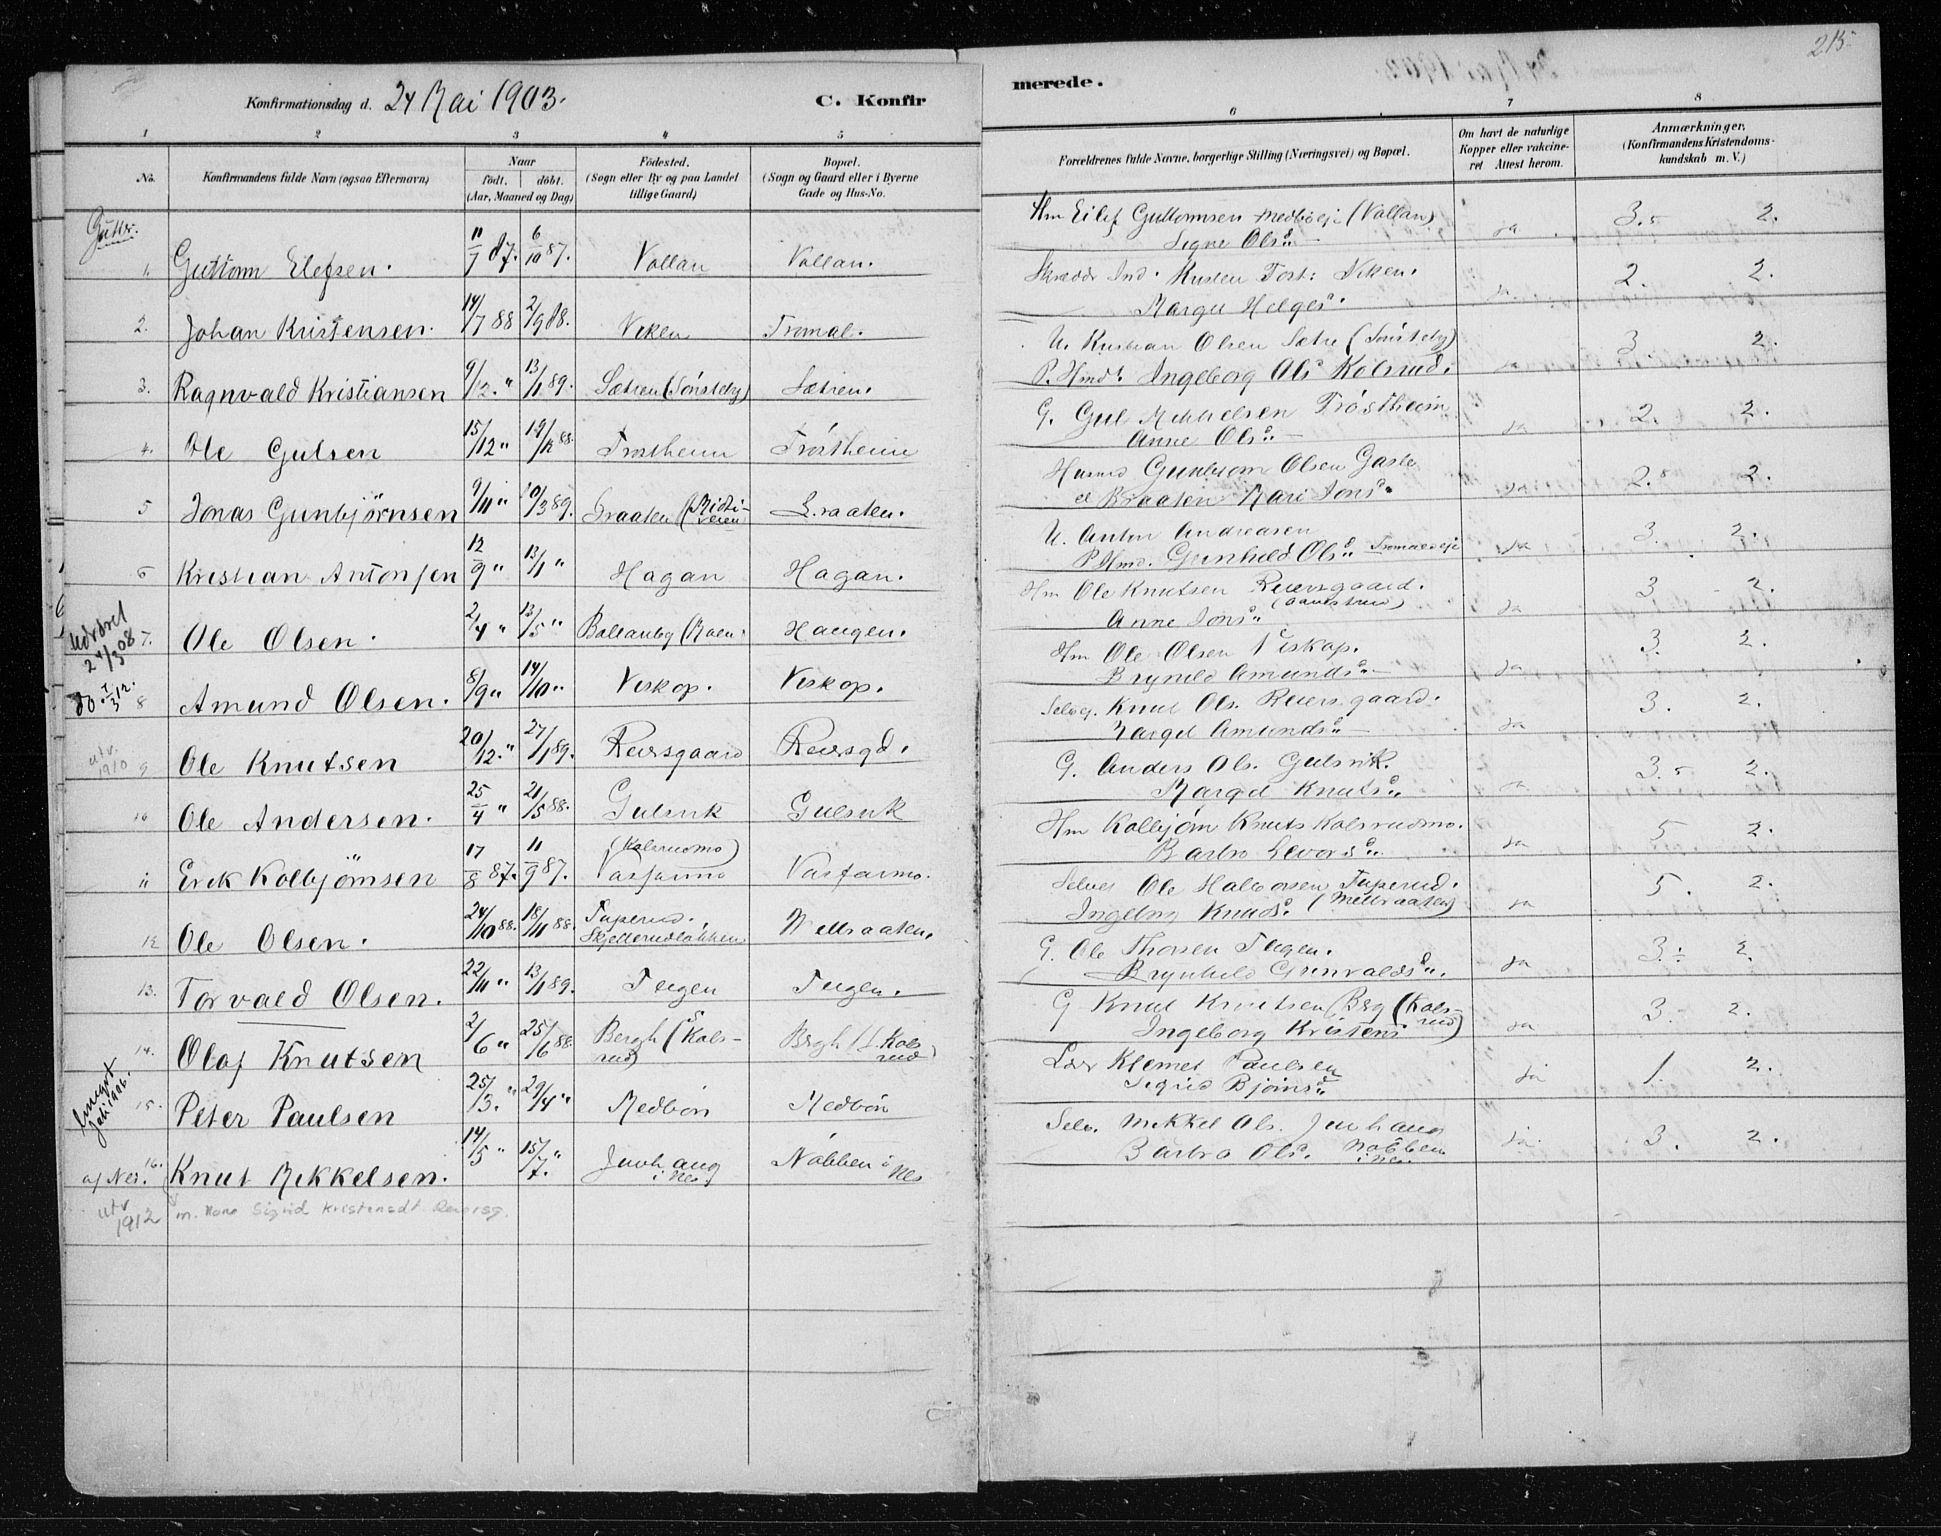 215
Konfirmationsdag d. 24 Mai 1903.
C. Konfir
merede.
1 2 3 4 5 6 7 8
No. Konfirmandens fulde Navn (ogsaa Efternavn)
Naar
født. døbt.
(Aar, Maaned og Dag)
Fødested.
(Sogn eller By og paa Landet
tillige Gaard)
Bopæl.
(Sogn og Gaard eller i Byerne
Gade og Hus-No.
Forældrenes fulde Navne, borgerlige Stilling (Næringsvei) og Bopæl.
Om havt de naturlige
Kopper eller vakcine-
ret Attest herom.
Anmærkninger.
(Konfirmandens Kristendoms-
kundskab m. V.)
Gutter.
1. Guttorm Elefsen. 11/7 87. 6/10 87. Vollan Vollan.
Hm Eilef Guttormsen Medbøeje (Vollan) ja 3.5 2.
Signe Olsd.
2. Johan Kristensen. 14/7 88 2/9 88. Viken Tromal.
Kristen Tost: Viken. ja 2. 2.
Margit Helgesd.
3. Ragnvald Kristiansen 9/12. " 13/1 89. Sætren (Sønsteby) Sætren.
U. Kristian Olsen Sætre (Sønsteby) ja 3 2.
P. Hmdt. Ingeborg Olsd Kolsrud.
4. Ole Gulsen 15/12 " 19/12 88. Trøstheim Trøstheim
G. Gul Mikkelsen Trøstheim ja 2. 2.
Anne Olsd.
5 Jonas Gunbjørnsen 9/11 " 10/3 89. Braaten (Midti-
veien Braaten.
Husmd Gunbjørn Olsen ja 2. 2.
Braaten Mari Jonsd.
6 Kristian Antonsen 12/9 " 13/1 " Hagan Hagan.
U. Anton Andreasen ja 3. 2.
P Hmd. Gunhild Olsd. Tromaldeje
Udvdret
24/3 08
7. Ole Olsen. 2/4 " 13/5 " Haugen.
Hm Ole Knutsen Reiersgaard. ja 3 2.
Anne Jonsd.
do. I/3 12.
8 Amund Olsen. 8/9 " 14/10 " Viskop. Viskop.
Hm Ole Olsen Viskop. ja 3. 2.
Brynild Amundsd.
utv.
1910
9 Ole Knutsen 20/12. " 27/1 89. Reiersgaard Reiersgd.
Selvej. Knut Ols. Reiersgaard. ja 3. 2.
Margit Amundsd.
10 Ole Andersen. 25/4 " 21/5 88. Gulsvik Gulsvik
G. Anders Ols. Gulsvik. ja 3.5 2.
Margit Knutsd.
11 Erik Kolbjørnsen 17/8 87. 11/9 87. (Kolsrudmo)
Vasfarmo Vasfarmo.
Hm Kolbjørn Knuts Kolsrudmo. ja 5 2.
Barbro Levorsd.
12 Ole Olsen. 24/10 88. 18/11 88. Tuperud.
Skjellerudløkken
Selvej Ole Halvorsen Tuperud. ja 5. 2.
Ingeborg Knudsd.
13. Torvald Olsen. 22/11 " 13/1 89. Trugen Trugen.
G. Ole Thorsen Trugen. ja 3.÷ 2.
Brynhild Gunvaldsd.
14. Olaf Knutsen 2/6 " 25/6 88. Bergh (Kols-
rud) Bergh (Kols
rud)
G Knut Knutsen Berg (Kols-
rud) ja 3. 2.
Ingeborg Kristensd
Juli 1906.
15. Peter Paulsen 25/3. " 29/4 " Medbøn Medbøn
Klemet Paulsen ja 1. 2.
Sigrid Bjørnsd.
af Nes. 16. Knut Mikkelsen. 14/5 " 15/7. " Juvhaug
i Nes Nøbben i
Nes
Selv. Mikkel Ols. Juvhaug ja. 3. 2.
Barbro Olsd. Nøbben
i Nes.
utv
1912 m. Kone Sigrid Kristensdt. Reiersg.